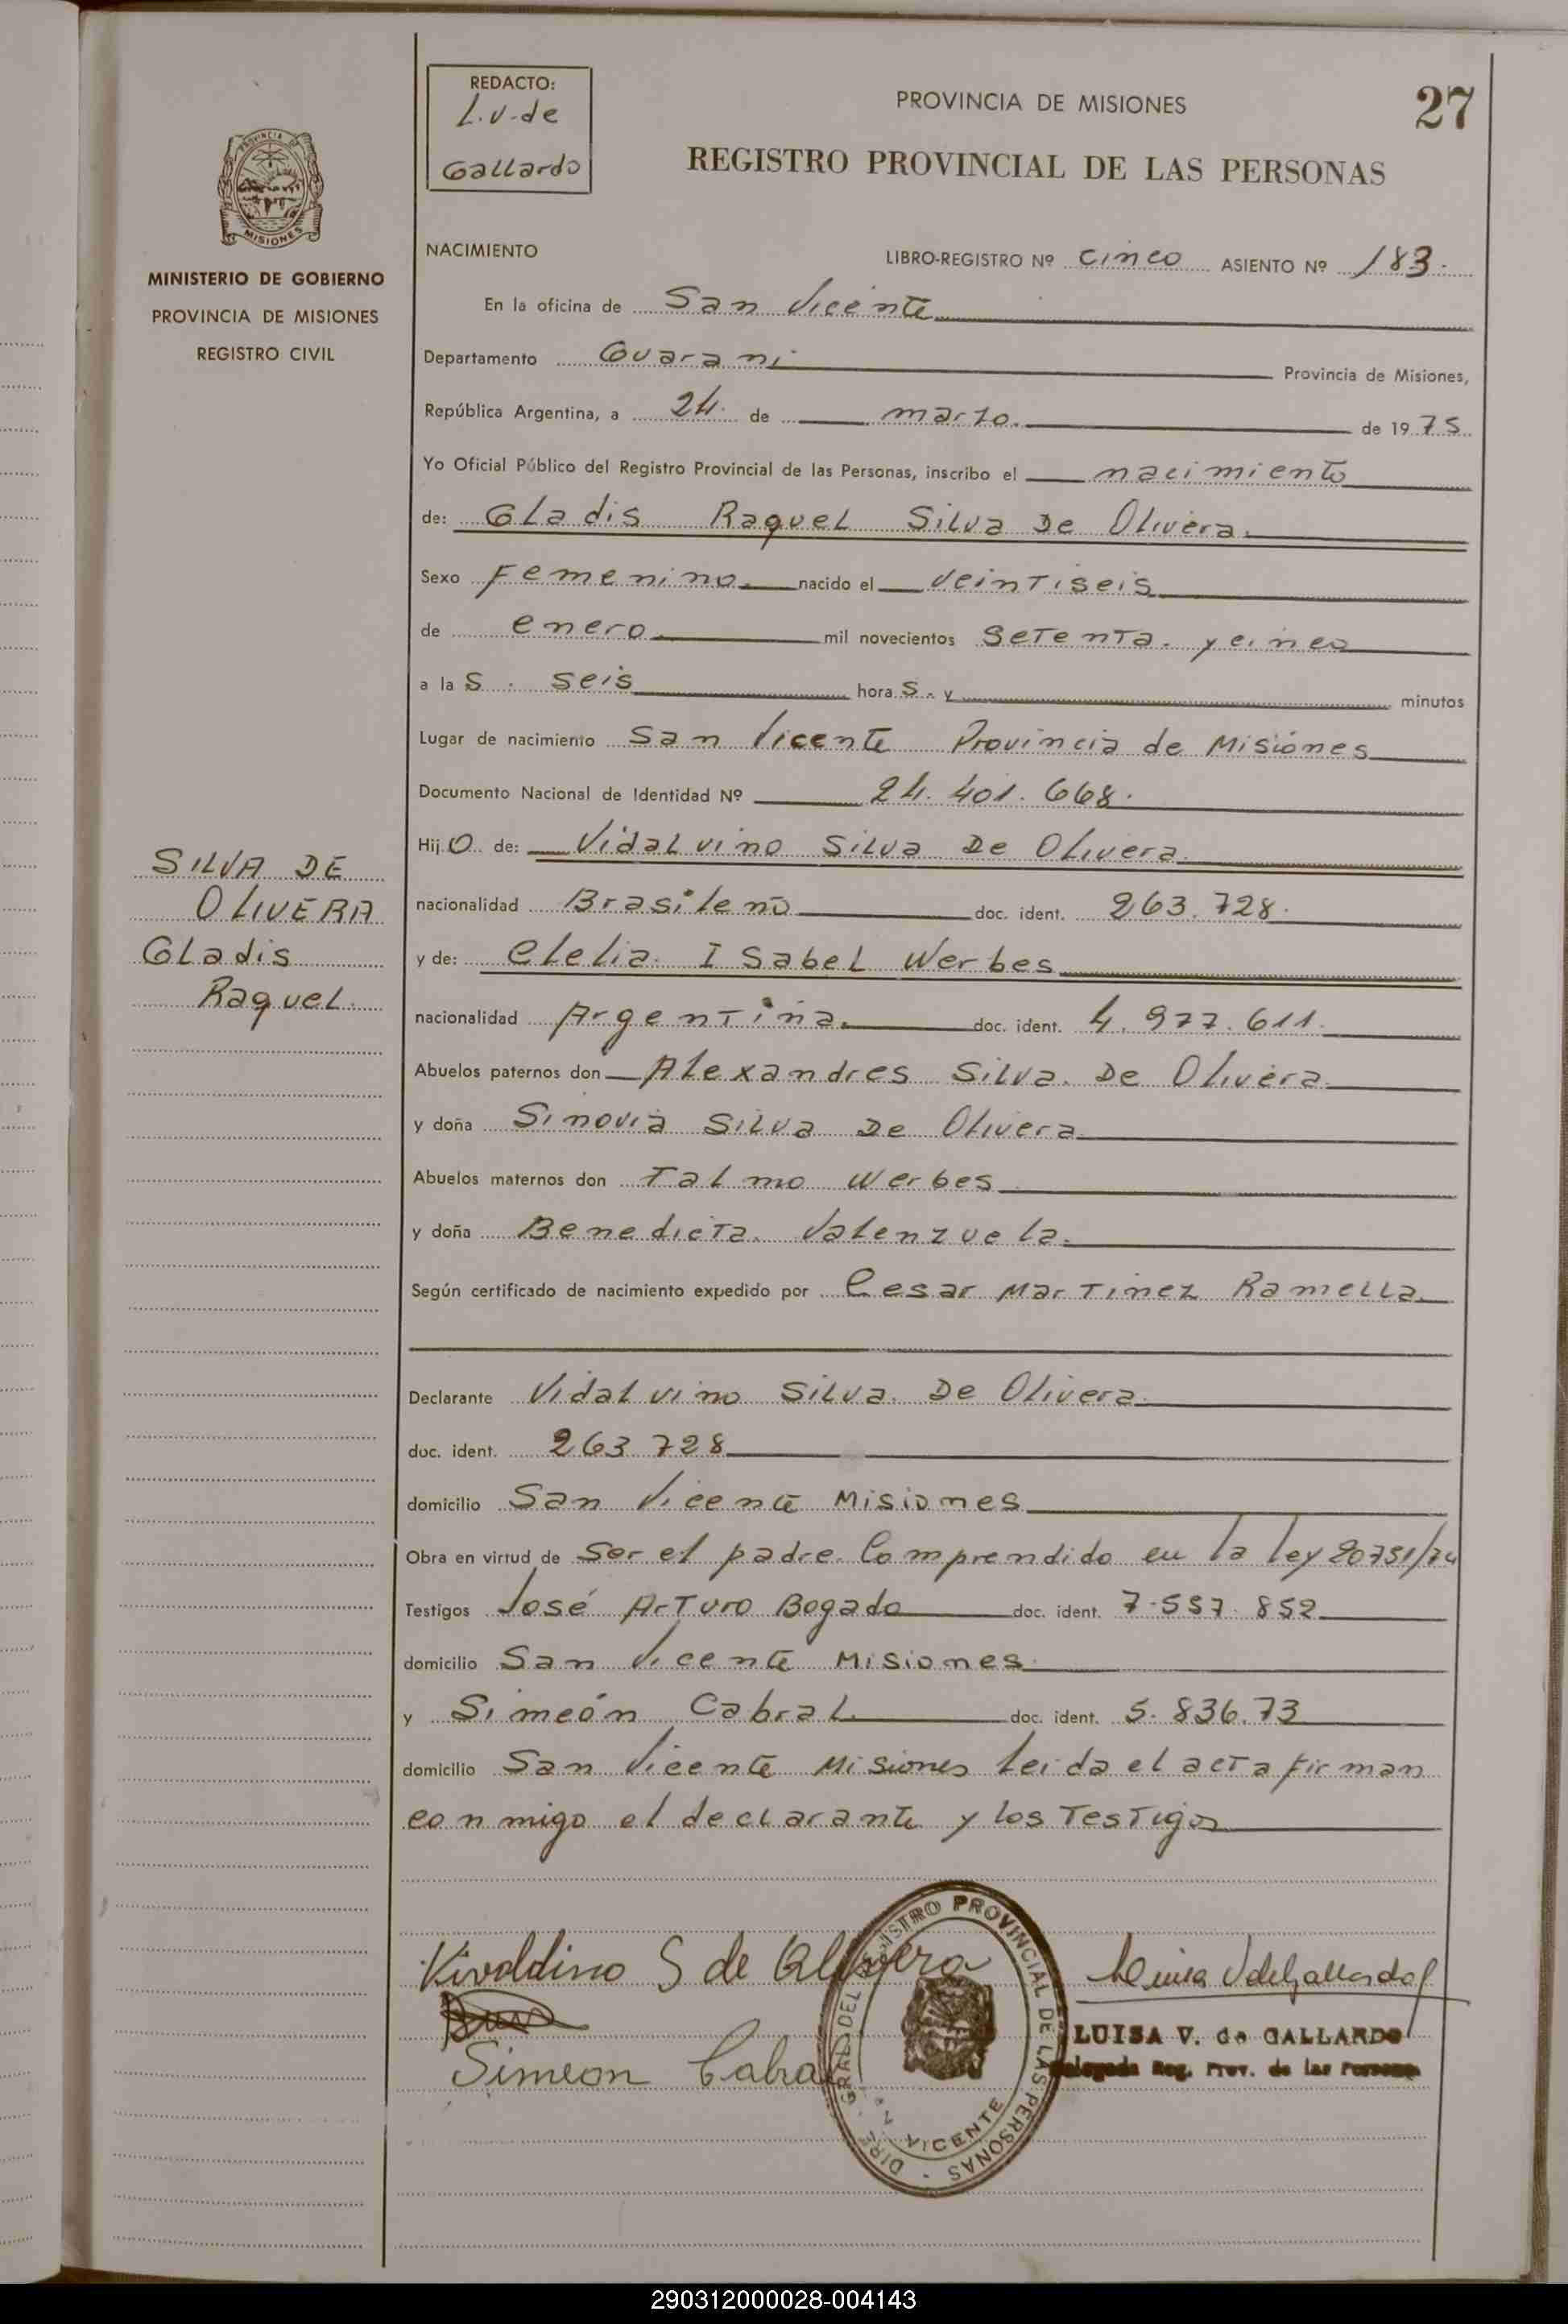 REDACTO:
L.V. de
Gallardo
PROVINCIA DE MISIONES
27
REGISTRO PROVINCIAL DE LAS PERSONAS
PROVINCIA DE
MISIONES
MINISTERIO DE GOBIERNO
PROVINCIA DE MISIONES
REGISTRO CIVIL
NACIMIENTO LIBRO-REGISTRO Nº cinco ASIENTO Nº 183.
En la oficina de San Vicente
Departamento Guarani Provincia de Misiones,
República Argentina, a 24. de marzo. de 1975.
Yo Oficial Público del Registro Provincial de las Personas, inscribo el nacimiento
de: Gladis Raquel Silva De Olivera.
Sexo Femenino. nacido el veintiseis
de enero mil novecientos setenta. y cinco
a las. seis horas. y minutos
Lugar de nacimiento San Vicente Provincia de Misiones
Documento Nacional de Identidad Nº 24.401.668.
Hijo de: Vidalvino Silva De Olivera.
nacionalidad Brasileño doc. ident. 263.728.
y de: Clelia. Isabel Werbes
nacionalidad Argentina. doc. ident. 4.977.611.
Abuelos paternos don Alexandres Silva. De Olivera.
y doña Sinovia Silva De Olivera
Abuelos maternos don Talmo Werbes
y doña Benedicta. Valenzuela.
Según certificado de nacimiento expedido por Cesar Martinez Ramella.
Declarante Vidalvino Silva. De Olivera.
doc. ident. 263728
domicilio San Vicente Misiones
Obra en virtud de Ser el padre. Comprendido en la ley 20751/74
Testigos José Arturo Bogado doc. ident. 7.557.852
domicilio San Vicente Misiones.
y Simeón Cabral. doc. ident. 5.836.73
domicilio San Vicente Misiones leida el acta firman
conmigo el declarante y los Testigos
SILVA DE
OLIVERA
Gladis
Raquel.
Vivaldino S de Olivera
Luisa V de Gallardo
Simeon Cabral
LUISA V. de GALLARDO
Delegada Reg. Prov. de las Personas
DIRE. GRAL. DEL REGISTRO PROVINCIAL DE LAS PERSONAS
VICENTE
290312000028-004143